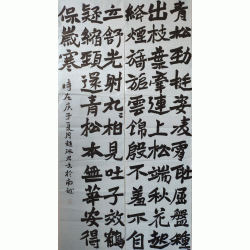 青松勁挺姿凌霄恥屈盤種
出枝葉牽連上松端秋花起
絳煙旖旎雲錦殷不羞不自
立舒光射丸〻柏見吐子效鶴
疑縮頸還青松本無華安得
保歲寒
時在庚子夏月